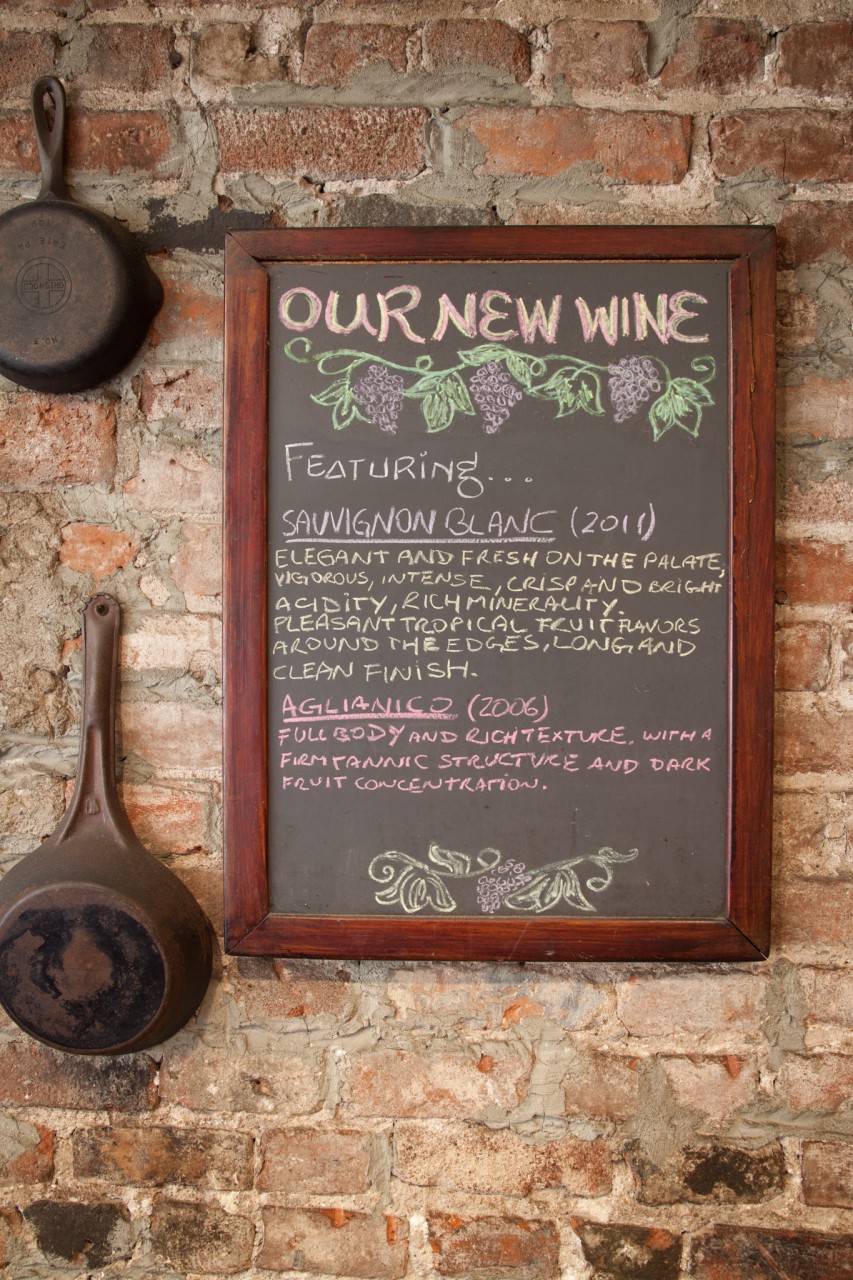 OUR NEW WINE
FEATURING...
SAUVIGNON BLANC (2011)
ELEGANT AND FRESH ON THE PALATE,
VIGOROUS, INTENSE, CRISP AND BRIGHT
ACIDITY, RICH MINERALITY.
PLEASANT TROPICAL FRUIT FLAVORS
AROUND THE EDGES, LONG AND
CLEAN FINISH.
AGLIANICO (2006)
FULL BODY AND RICH TEXTURE, WITH A
FIRM TANNIC STRUCTURE AND DARK
FRUIT CONCENTRATION.
ERIE PA
GRISWOLD